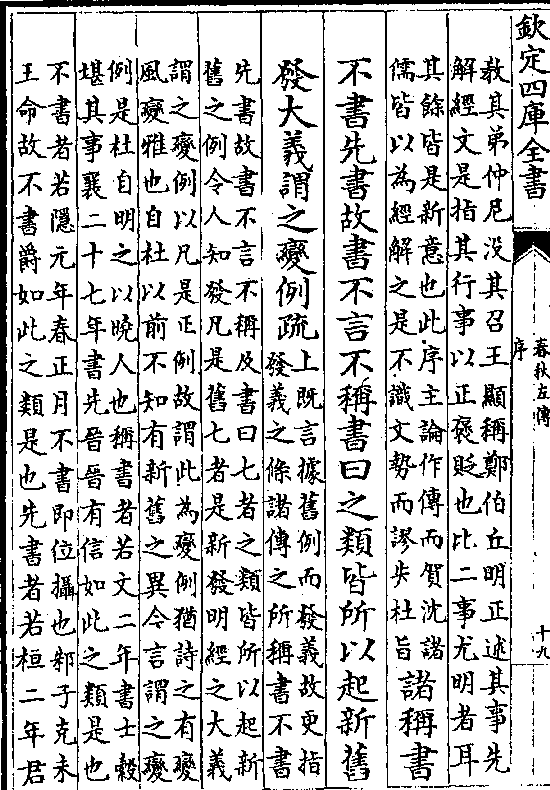 欽定四庫全書
春秋左傳
序
十九
教其弟仲尼没其召王顯稱鄭伯丘明正述其事先
解經文是指其行事以正褒貶也比二事尤明者耳
其餘皆是新意也此序主論作傳而賀沈諸
儒皆以為經解之是不識文勢而謬失杜旨
諸稱書
不書先書故書不言不稱書曰之類皆所以起新舊
發大義謂之變例疏
上既言據舊例而發義故更指
發義之條諸傳之所稱書不書
先書故書不言不稱及書曰七者之類皆所以起新
舊之例令人知發凡是舊七者是新發明經之大義
謂之變例以凡是正例故謂此為變例猶詩之有變
風變雅也自杜以前不知有新舊之異今言謂之變
例是杜自明之以曉人也稱書者若文二年書士縠
堪其事襄二十七年書先晉晉有信如此之類是也
不書者若隱元年春正月不書即位攝也邾子克未
王命故不書爵如此之類是也先書者若桓二年君